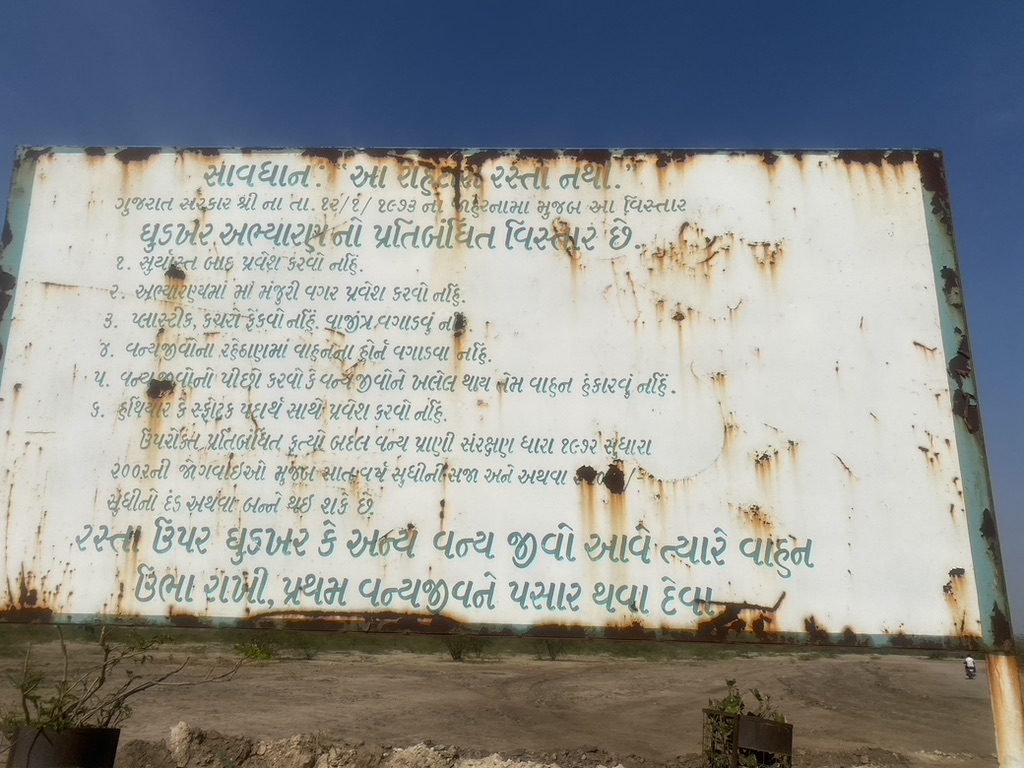 સાવધાન. "આ રાહદારી રસ્તો નથી."
ગુજરાત સરકાર શ્રી ના તા. ૧૨/૧/ ૧૯૭૩ ના જાહેરનામા મુજબ આ વિસ્તાર
ઘુડખર અભ્યારણ નો પ્રતિબંધિત વિસ્તાર છે.
૧. સુર્યાસ્ત બાદ પ્રવેશ કરવો નહિં.
૨. અભ્યારણ્યમાં માં મંજુરી વગર પ્રવેશ કરવો નહિં.
૩. પ્લાસ્ટીક, કચરો ફેંકવો નહિં. વાજીંત્ર વગાડવું
૪. વન્યજીવોના રહેઠાણમાં વાહનના હોર્ન વગાડવા નહિં.
૫. વન્યજીવોનો પીછો કરવો કે વન્ય જીવોને ખલેલ થાય તેમ વાહન હંકારવું નહિં.
૬. હથિયાર કે સ્ફોટક પદાર્થ સાથે પ્રવેશ કરવો નહિં.
ઉપરોક્ત પ્રતિબંધિત કૃત્યો બદલ વન્ય પ્રાણી સંરક્ષણ ધારા ૧૯૭૨ સુધારા
૨૦૦૨ની જોગવાઇઓ મુજબ સાત વર્ષ સુધીની સજા અને અથવા
સુધીનો દંડ અથવા બન્ને થઇ શકે છે.
રસ્તા ઉપર ઘુડખર કે અન્ય વન્ય જીવો આવે ત્યારે વાહન
ઉભા રાખી, પ્રથમ વન્યજીવને પસાર થવા દેવા